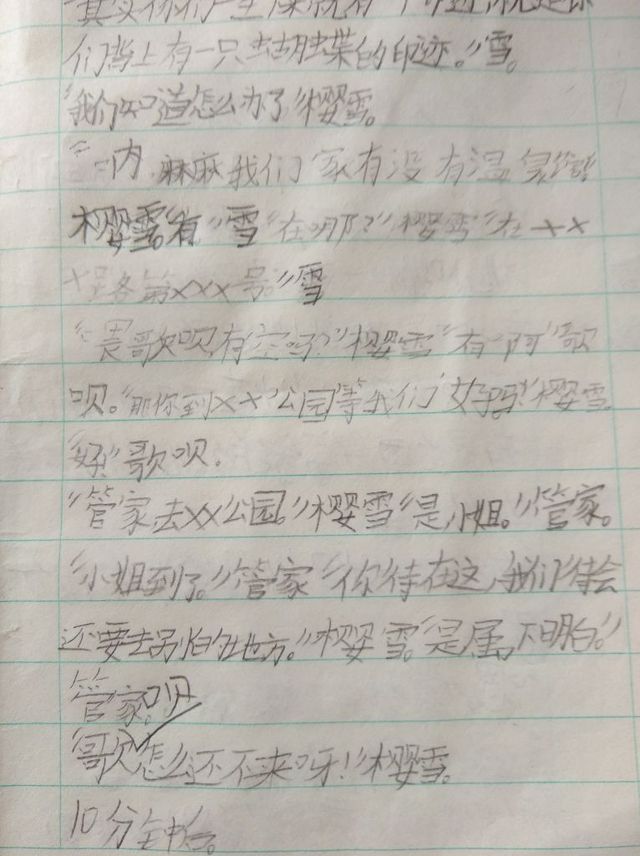 们背上有一只蝴蝶的印迹。"雪。
"我们知道怎么办了"樱雪。
内 麻麻我们家有没有温泉
樱雪。"有"雪"在哪?"樱雪"在××
×路第×××号。"雪
歌呗,有空吗?"樱雪"有阿"歌
呗。"那你到××公园等我们好吗!"樱雪。
"好"歌呗。
"管家去××公园。"樱雪"是小姐。"管家。
"小姐到了。"管家"你待在这,我们待会
还要去别的地方。"樱雪。"是属下明白。"
管家。
"歌怎么还不来呀!"樱雪。
10分钟后。